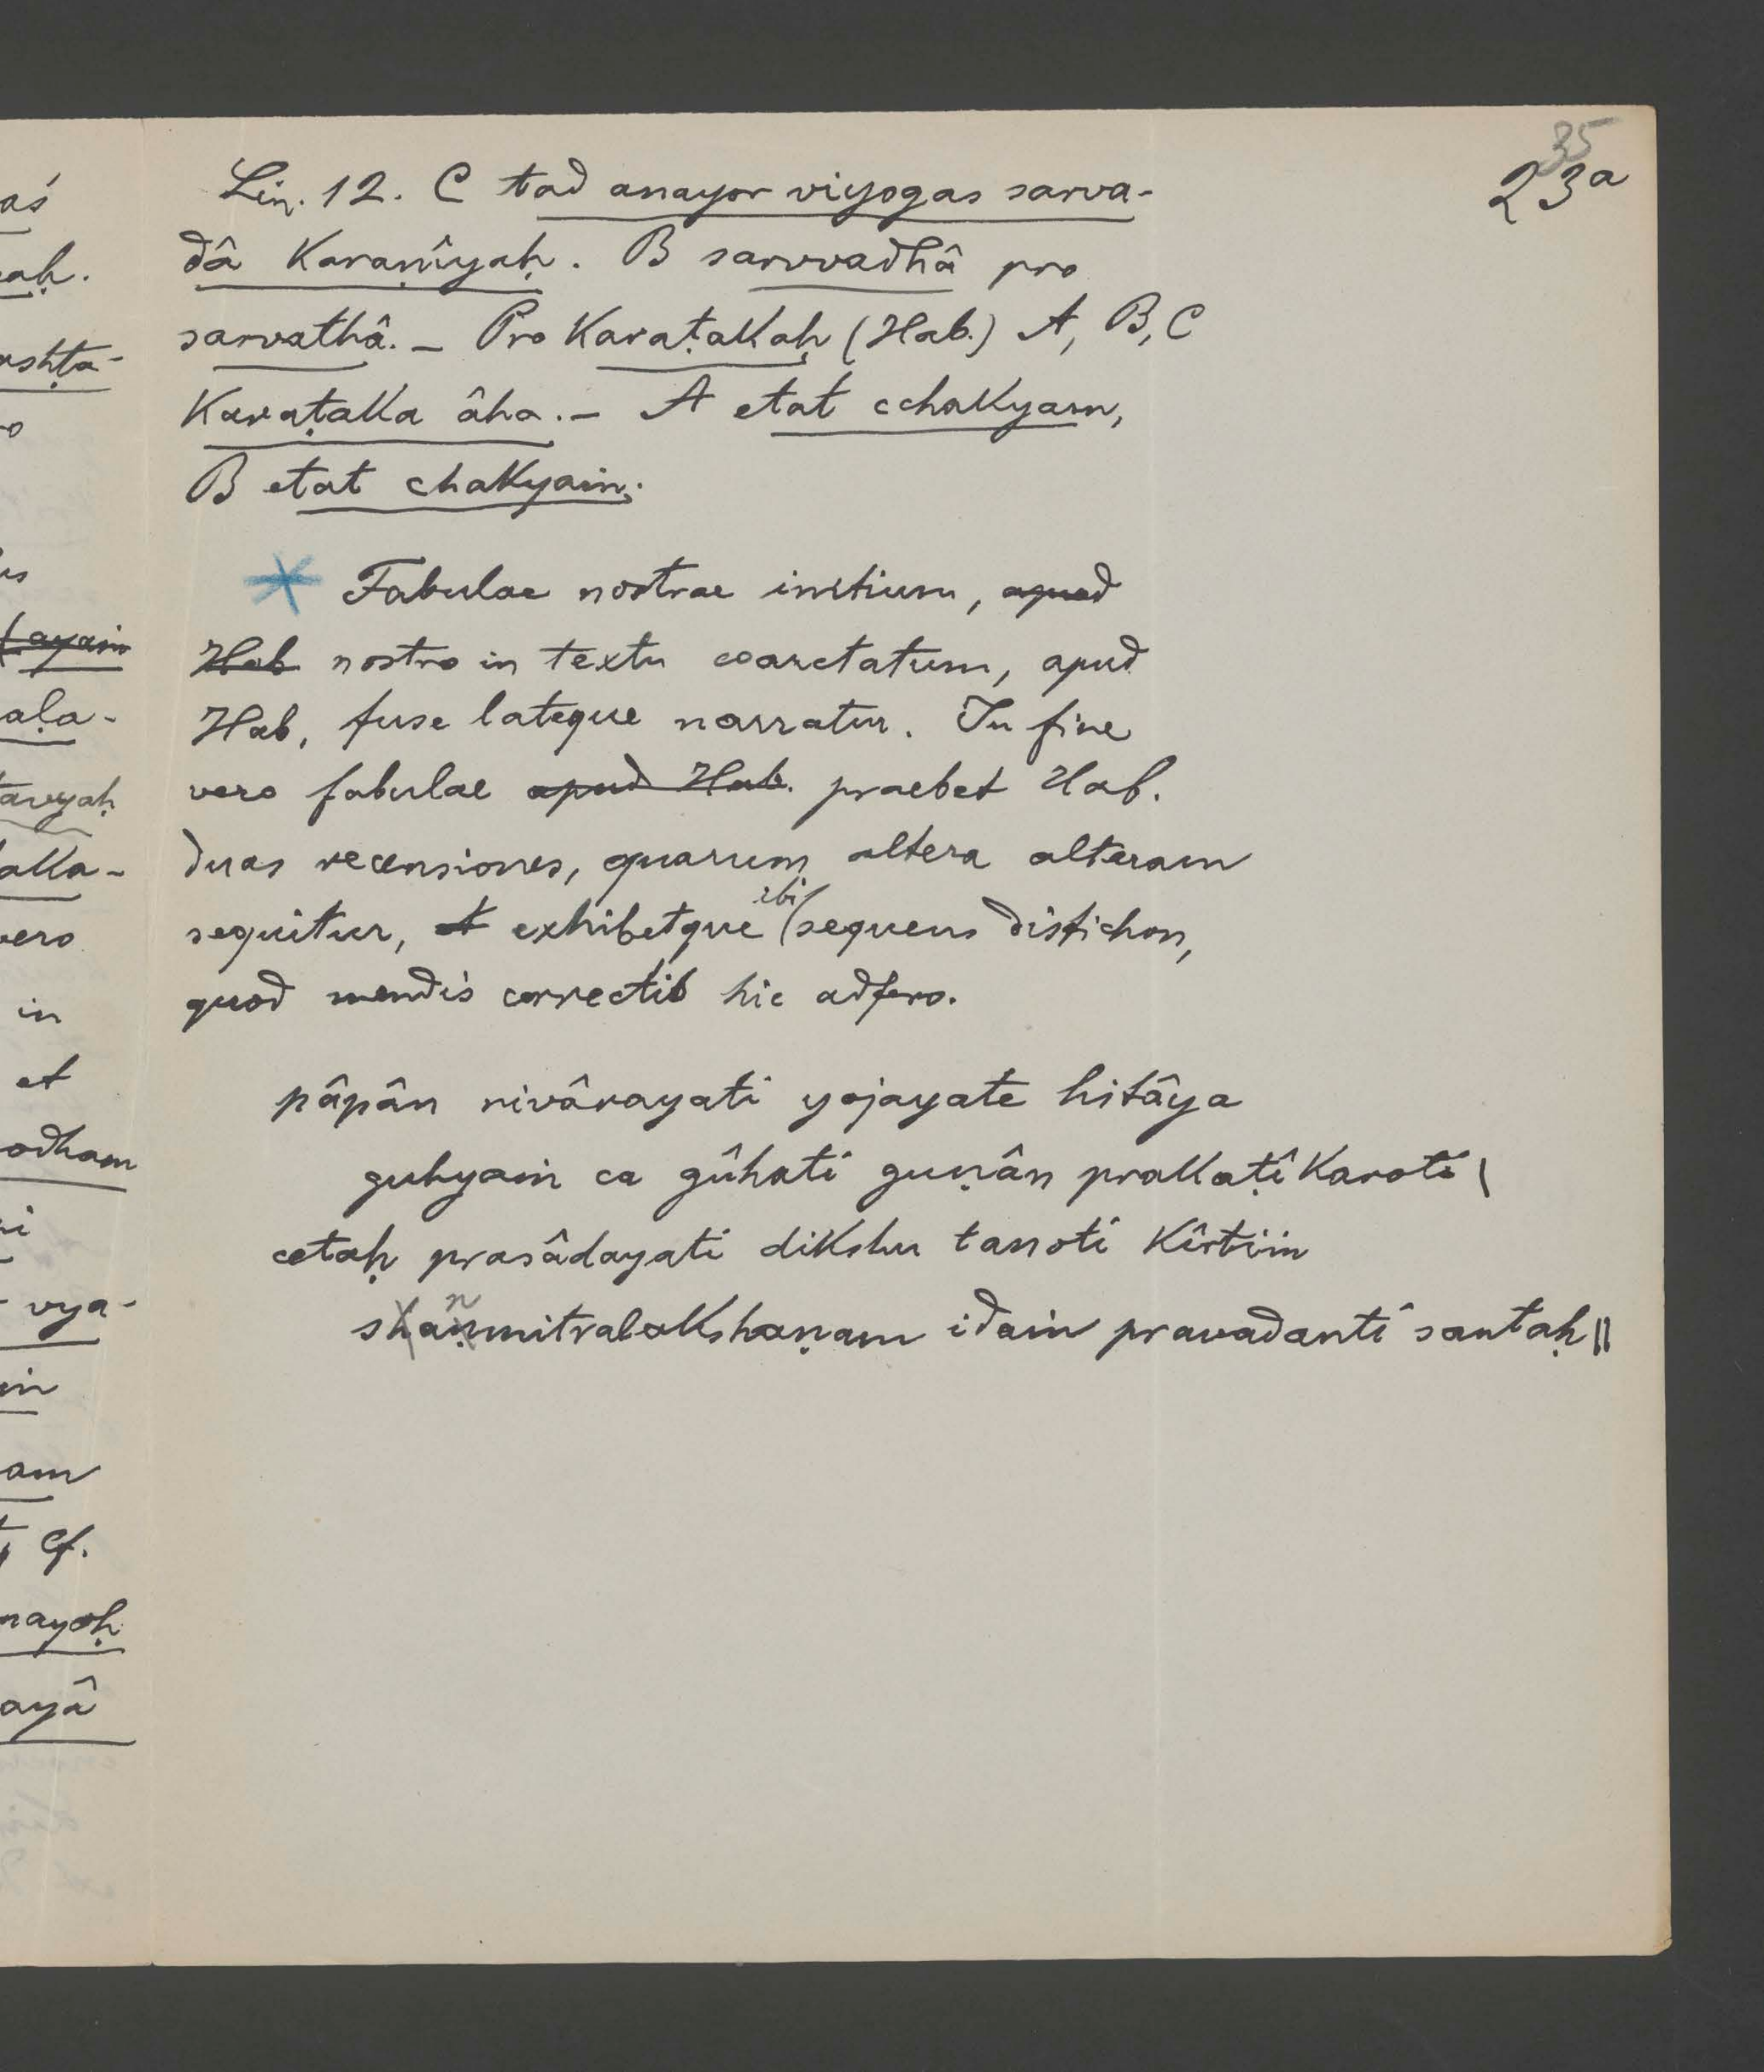 35
23a
Lin. 12. C tad anayor viyogas sarva-
dâ karaṇîyaḥ. B sarvvadhâ pro
sarvathâ. – Pro Karaṭakaḥ (Hab.) A, B, C
Karaṭaka âha. – A etat cchakyam,
B etat chakyaṁ.
* Fabulae nostrae initium, apud
Hab nostro in textu coarctatum, apud
Hab, fuse lateque narratur. In fine
vero fabulae apud Hab. praebet Hab.
duas recensiones, quarum altera alteram
sequitur, et exhibetque ibi sequens distichon,
quod mendis correctis hic adfero.
pâpân nivârayati yojayate hitâya
guhyaṁ ca gûhati guṇân prakaṭîkaroti |
cetaḥ prasâdayati dikshu tanoti kîrtiṁ
sanmitralakshaṇam idaṁ pravadanti santaḥ ||
aś
aḥ.
ushṭa-
o
us
(ayaṁ
aḷa-
tavyaḥ
aka-
vero
in
et
odham
i
vya-
in
am
cf.
nayoḥ
ayâ